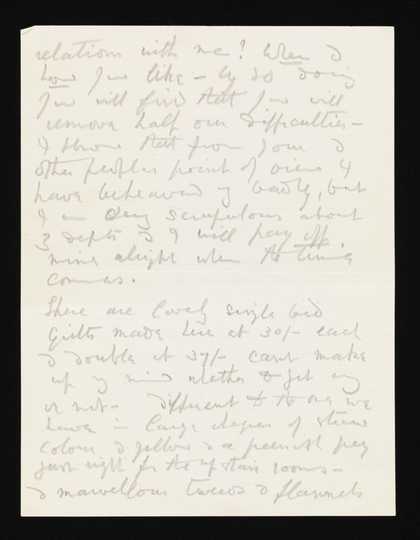 relations with me? When &
how you like — by so doing
you will find that you will
remove half our difficulties —
I know that from your &
other peoples point of view I
have behaved badly, but
I am very scrupulous about
debts & I will pay off
mine alright when the time
comes.
There are lovely single bed
quilts made here at 30/- each
& double at 37/- cant make
up my mind whether to get any
or not — different to the one we
have — large of
colour & yellow & a perfect
just right for the upstairs rooms —
& marvellous tweeds & flannels